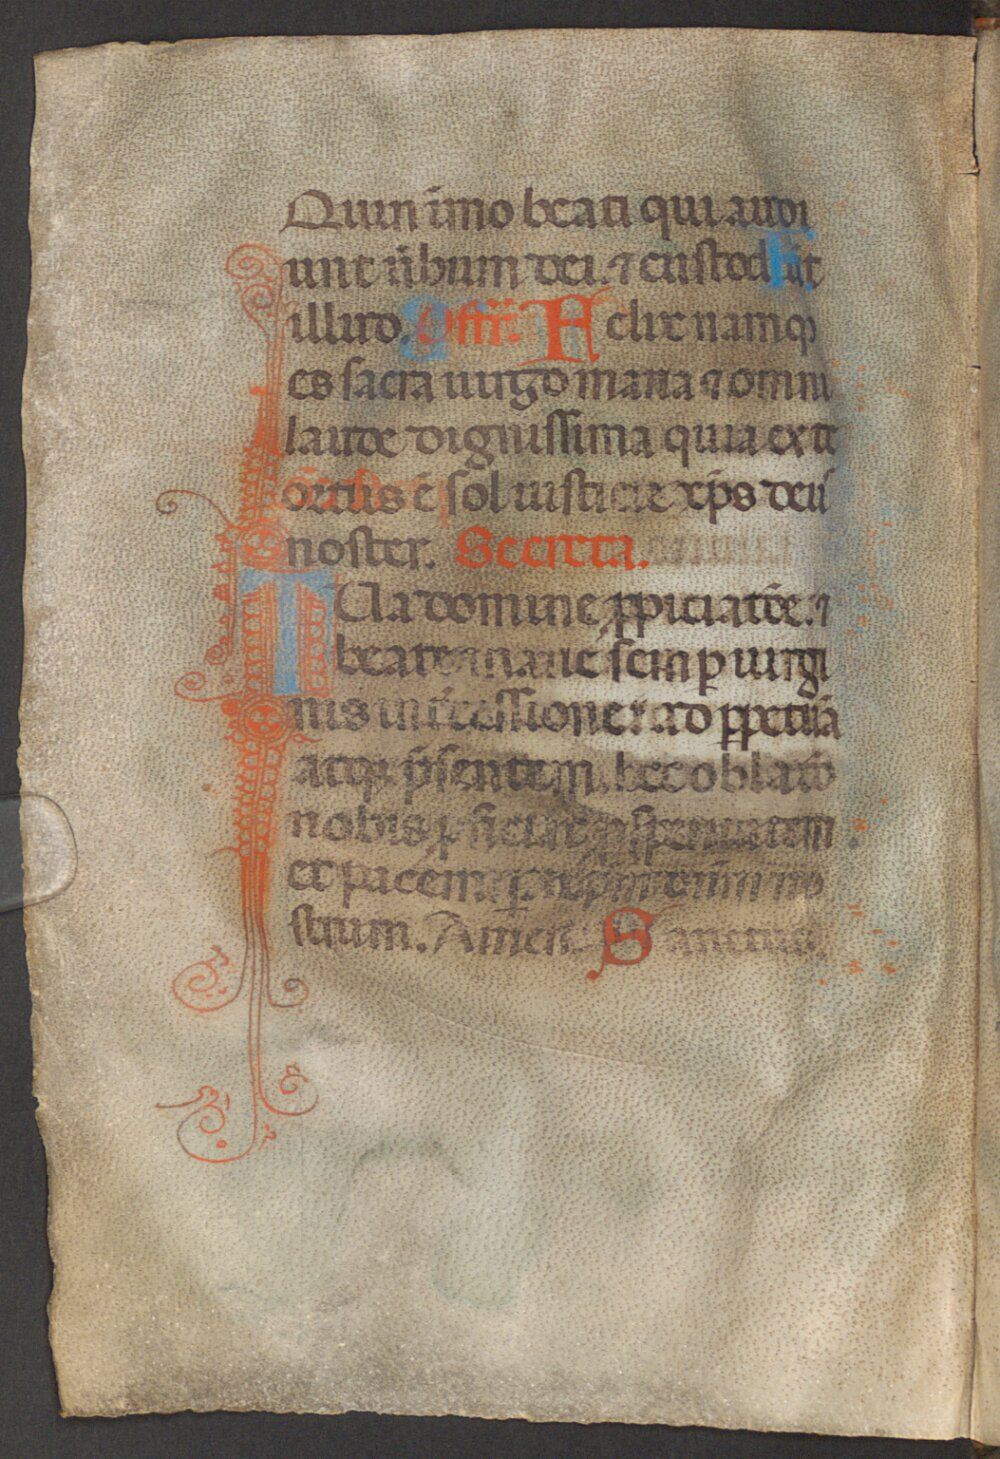 Quin īmo beati qui audi
unt ūbum dei. ⁊ custodiūt
illud. Offr̄. Felix namq̨
es sacra uirgo maria ⁊ omni
laude dignissima quia ex te
ortus ē sol iusticie xp̄s deū
noster. Secreta.
Tua domine ꝓpiciatōe. ⁊
beate marie semꝑ uirgi
nis int̄cessione. ad ꝑpetuā
atq̨ p̄sentem. hec oblatō
nobis ꝓficiat ꝓsperitatem
et pacem. ꝑ dn̄m no
strum. Amen. Sanctus